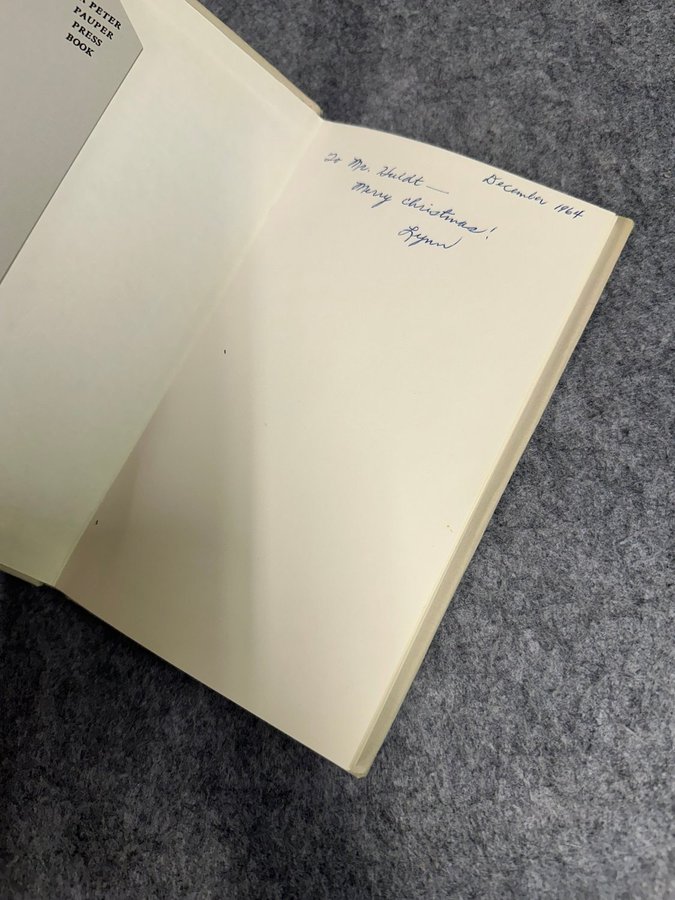 A PETER
PAUPER
PRESS
BOOK
December 1964
To Mr. Huldt —
Merry Christmas!
Lynn